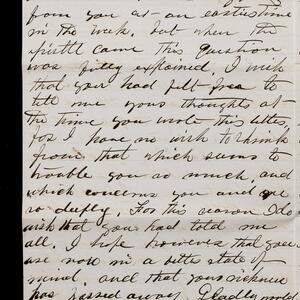 from you at an earlier time
in the week, but when the
epistle came this question
was fully explained. I wish
that you had felt free to
tell me your thoughts at
the time you wrote this letter,
for I have no wish to shrink
from that which seems to
trouble you so much, and
which concerns you and me
so deeply. For this reason I do
wish that you had told me
all. I hope however that you
are now in a better state of
mind, and that your sickness
has passed away. Gladly would